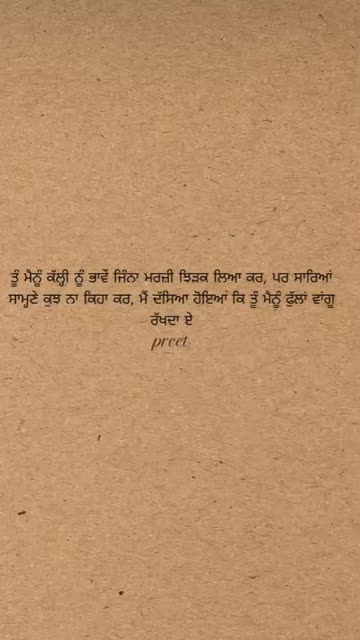 ਤੂੰ ਮੈਨੂੰ ਕੱਲ੍ਹੀ ਨੂੰ ਭਾਵੇਂ ਜਿੰਨਾ ਮਰਜ਼ੀ ਝਿੜਕ ਲਿਆ ਕਰ, ਪਰ ਸਾਰਿਆਂ
ਸਾਮ੍ਹਣੇ ਕੁਝ ਨਾ ਕਿਹਾ ਕਰ, ਮੈਂ ਦੱਸਿਆ ਹੋਇਆਂ ਕਿ ਤੂੰ ਮੈਨੂੰ ਫੁੱਲਾਂ ਵਾਂਗੂ
ਰੱਖਦਾ ਏ
preet